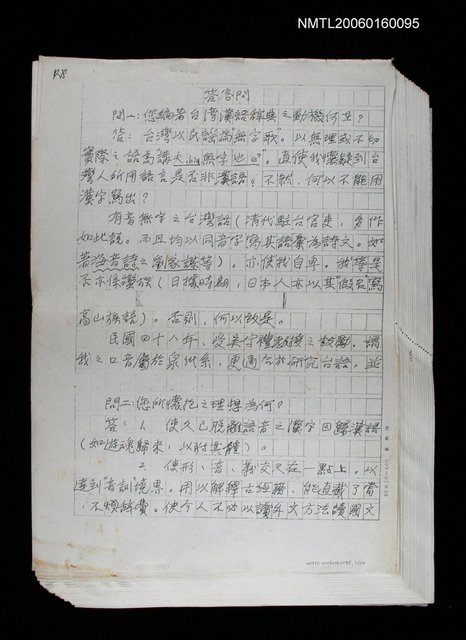 NMTL20060160095
答客問
問一:您編著台灣漢語辭典之動機何在?
答:台灣以民謠為無字歌"。以無理或不切
實際之語為講夭 無字也曰"。直使我懷疑到台
灣人所用語言是否非漢語。不然,何以不能用
漢字寫出?
有音無字之台灣話(清代駐台官吏,多作
如此說。而且均以同音字寫其語彙為詩文。如
著海音詩之劉家謀等)。亦使我自卑。我等是
否亦係 族(日據時期,日本人亦以其"假名"寫
高山族語)。否則,何以故是。
民國四十八年,受吳守禮教授之鼓勵。謂
我之口音屬於泉州系,更適合於研究台語。並
問二:您所懷抱之理想為何?
答:1. 使久已脫離語音之漢字回歸漢語
(如遊魂歸來,以附其體)。
2. 使形、音、義交叉在一點上。以
達到"音訓"境界。用以解釋古經籍,能直截了當
,不煩辭費。使今人不必以讀外文方法讀國文